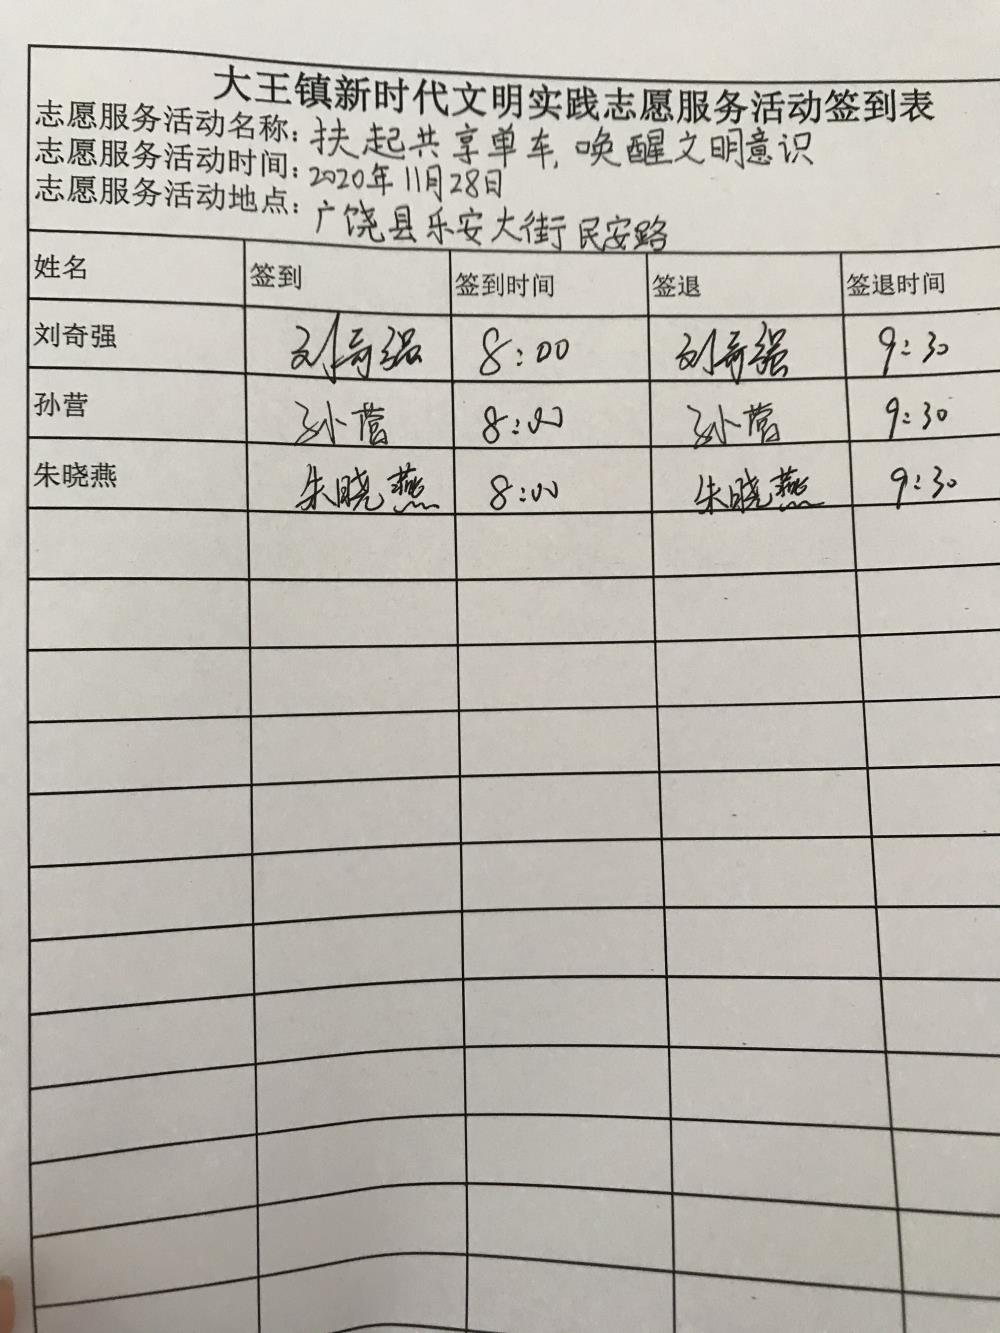 大王镇新时代文明实践志愿服务活动签到表
志愿服务活动名称：扶起共享单车，唤醒文明意识
志愿服务活动时间：2020年11月28日
志愿服务活动地点：广饶县乐安大街民安路
姓名 签到 签到时间 签退 签退时间
刘奇强 刘奇强 8:00 刘奇强 9:30
孙营 孙营 8:00 孙营 9:30
朱晓燕 朱晓燕 8:00 朱晓燕 9:30